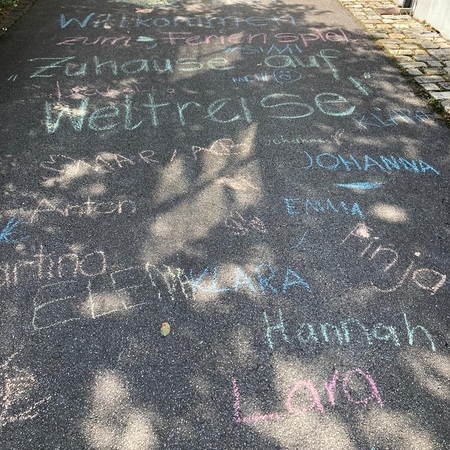 Willkommen
zum Ferienspiel
SIMI
"Zuhause auf
Weltreise"
Johanna
MARIA
JOHANNA
Anton
EMMA
Pinja
artina
ELENA
KLARA
Hannah
Lara